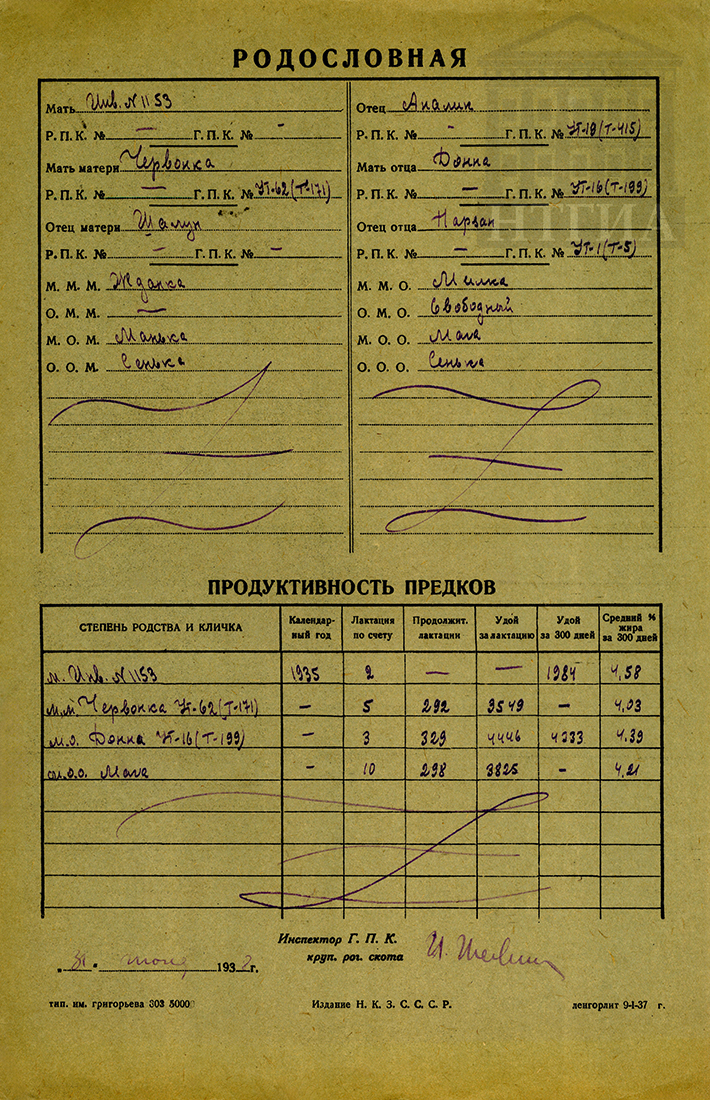 РОДОСЛОВНАЯ
Мать Инв. N 1153
Р. П. К. № — Г. П. К. № -
Мать матери Червонка
Р. П. К. № — Г. П. К. № УТ-62 (Т-171)
Отец матери Шалун
Р. П. К. № — Г. П. К. № —
М. М. М. Жданка
О. М. М. —
М. О. М. Манька
О. О. М. Сенька
Отец Аналик
Р. П. К. № - Г. П. К. № УТ-19 (Т-415)
Мать отца Донна
Р. П. К. № — Г. П. К. № УТ-16 (Т-199)
Отец отца Нарзан
Р. П. К. № — Г. П. К. № УТ-1 (Т-5)
М. М. О. Милка
О. М. О. Свободный
М. О. О. Мага
О. О. О. Сенька
НТГИА
ПРОДУКТИВНОСТЬ ПРЕДКОВ
СТЕПЕНЬ РОДСТВА И КЛИЧКА Календар-ный год Лактация по счету Продолжит. лактации Удой за лактацию Удой за 300 дней Средний % жира за 300 дней
м. Инв. N 1153 1935 2 — — 1984 4,58
м.м. Червонка УТ-62 (Т-171) — 5 292 3549 — 4,03
м.о. Донна УТ-16 (Т-199) — 3 329 4446 4233 4,39
м.о.о. Мага — 10 298 3825 — 4,21
Инспектор Г. П. К.
круп. рог. скота
193 г.
тип. им. григорьева 303 5000 Издание Н. К. З. С. С. С. Р. ленгорлит 9-I-37 г.